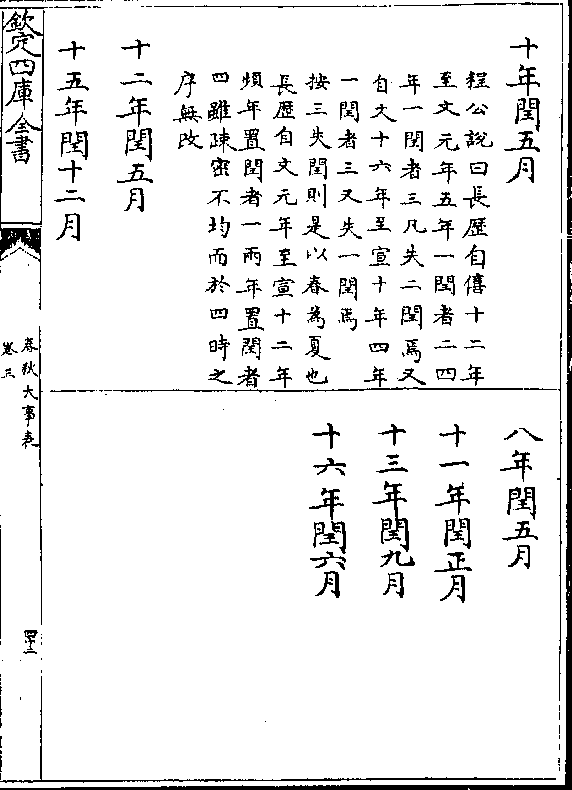 十年閏五月
程公說曰長歴自僖十二年
至文元年五年一閏者二四
年一閏者三凡失二閏焉又
自文十六年至宣十年四年
一閏者三又失一閏焉
按三失閏則是以春為夏也
長歴自文元年至宣十二年
頻年置閏者一兩年置閏者
四雖疎宻不均而於四時之
序無改
十二年閏五月
十五年閏十二月
八年閏五月
十一年閏正月
十三年閏九月
十六年閏六月
欽定四庫全書
春秋大事表
卷三
四十二